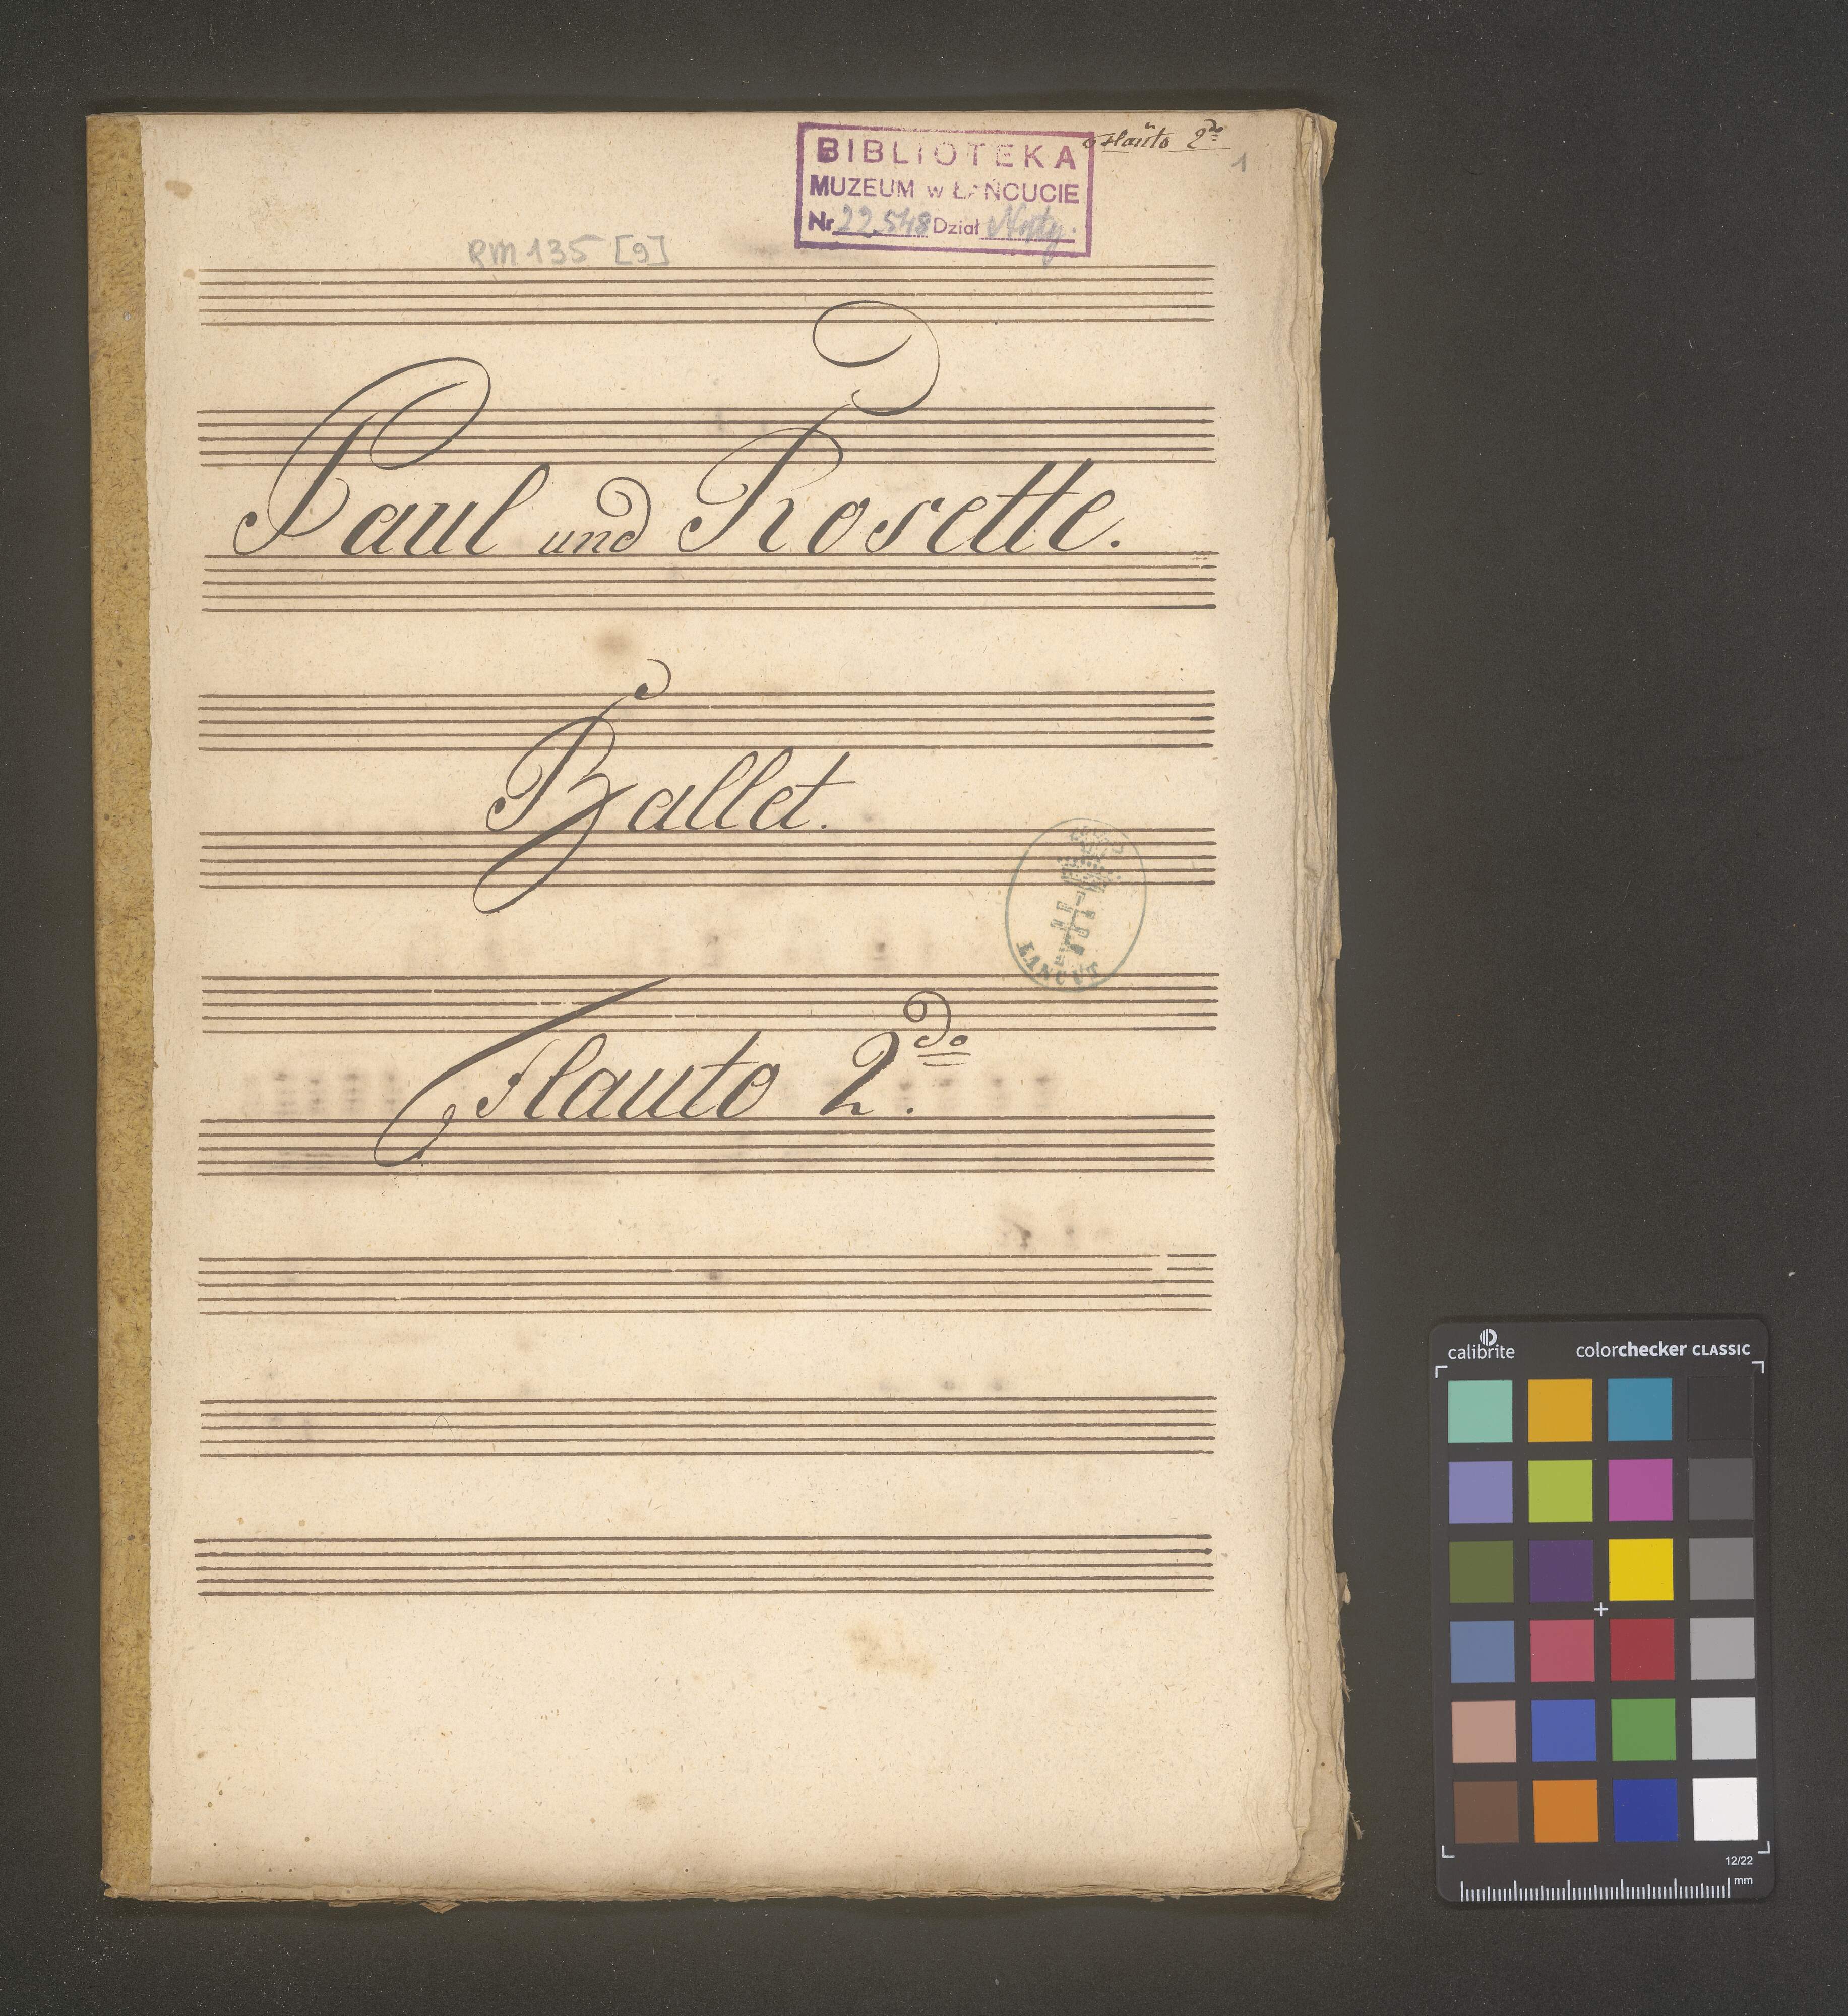 Flauto 2do
1
BIBLIOTEKA
MUZEUM w ŁAŃCUCIE
Nr 22.548 Dział Nuty.
RM 135 [9]
Paul und Rosette.
Ballet.
ŁAŃCUT
Flauto 2.do
calibrite colorchecker CLASSIC
12/22
mm